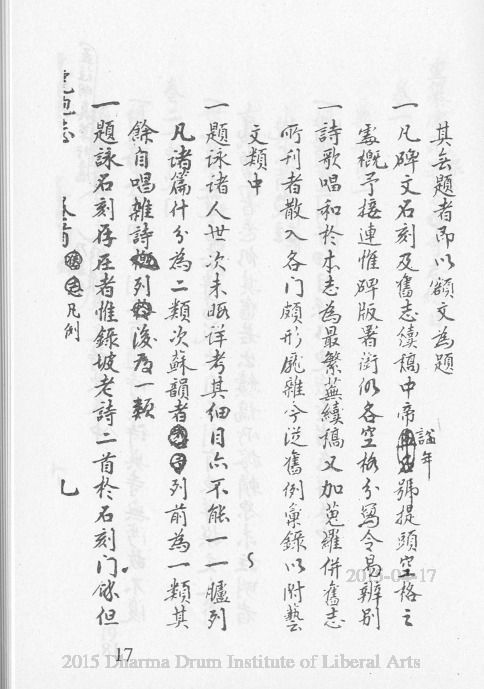 其無題者即以額文為題
一凡碑文石刻及舊志續稿中帝諡年號提頭空格之
處概予接連惟碑版署銜仍各空格分寫令易辨別
一詩歌唱和於本志為最繁蕪續稿又加蒐羅併舊志
所刊者散入各門頗形龐雜今從舊例彙錄以附藝
文類中
一題詠諸人世次未暇詳考其細目亦不能一一臚列
凡諸篇什分為二類次蘇韻者列前為一類其
餘自唱雜詩列後為一類
一題詠石刻存在者惟錄坡老詩二首於石刻門餘但
志
凡例
七
17
2015-04-17
2015 Dharma Drum Institute of Liberal Arts